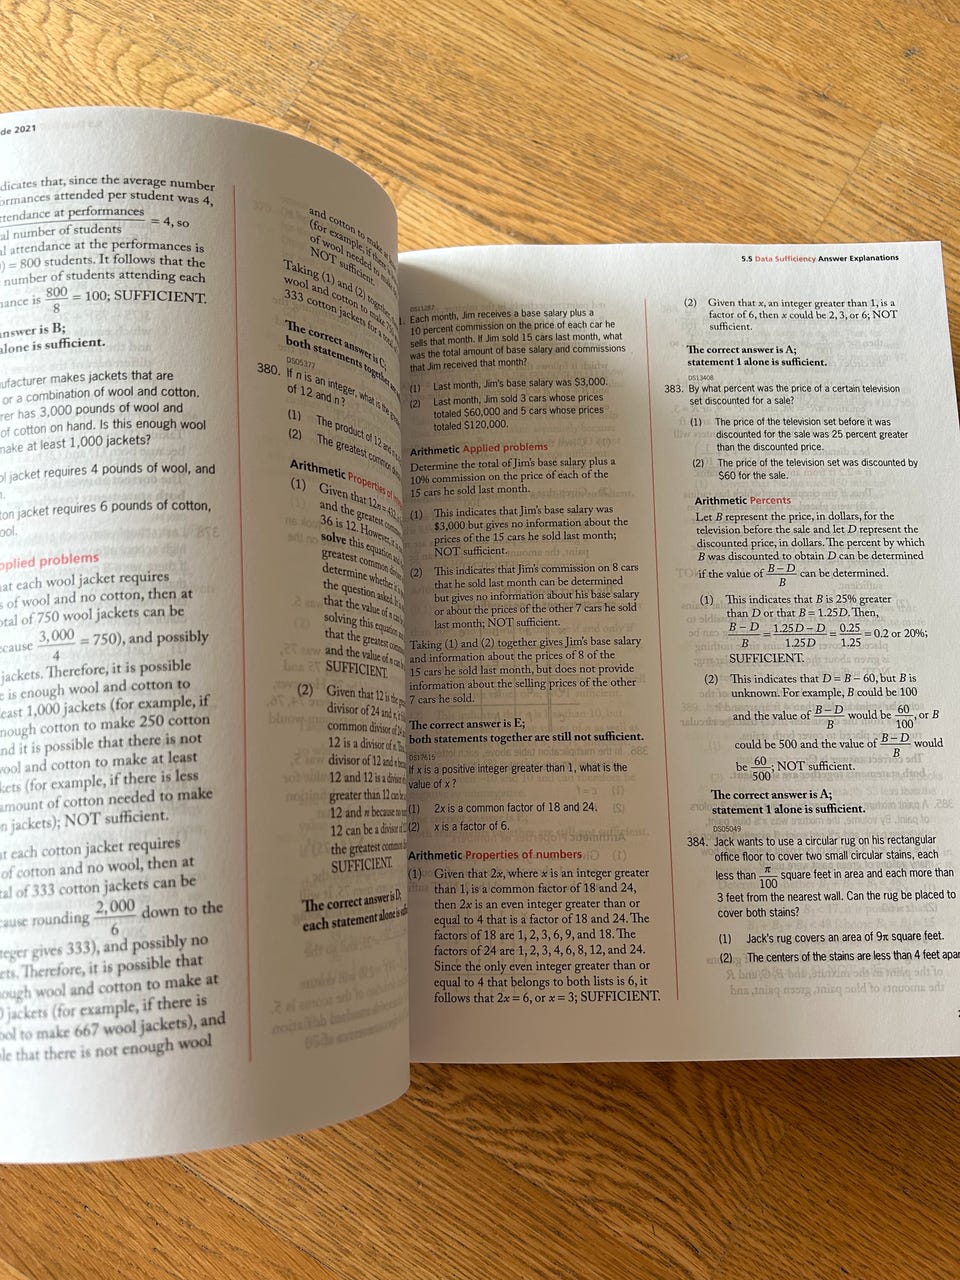 de 2021
dicates that, since the average number
ormances attended per student was 4,
ttendance at performances
al number of students
= 4, so
al attendance at the performances is
) = 800 students. It follows that the
number of students attending each
mance is 800/8 = 100; SUFFICIENT.
answer is B;
alone is sufficient.
ufacturer makes jackets that are
or a combination of wool and cotton.
rer has 3,000 pounds of wool and
of cotton on hand. Is this enough wool
make at least 1,000 jackets?
ol jacket requires 4 pounds of wool, and
ton jacket requires 6 pounds of cotton,
ool.
pplied problems
at each wool jacket requires
s of wool and no cotton, then at
otal of 750 wool jackets can be
cause 3,000/4 = 750), and possibly
jackets. Therefore, it is possible
e is enough wool and cotton to
east 1,000 jackets (for example, if
nough cotton to make 250 cotton
nd it is possible that there is not
ool and cotton to make at least
kets (for example, if there is less
amount of cotton needed to make
n jackets); NOT sufficient.
at each cotton jacket requires
of cotton and no wool, then at
tal of 333 cotton jackets can be
cause rounding 2,000/6 down to the
teger gives 333), and possibly no
ets. Therefore, it is possible that
ough wool and cotton to make at
jackets (for example, if there is
ool to make 667 wool jackets), and
le that there is not enough wool
and cotton to make at
(for example, if there is
of wool needed to make
NOT sufficient.
Taking (1) and (2) together,
wool and cotton to make
333 cotton jackets for a total
The correct answer is C;
both statements together
DS05377
380. If n is an integer, what is the
of 12 and n?
(1) The product of 12 and n
(2) The greatest common
Arithmetic Properties of
(1) Given that 12n = 432,
and the greatest common
36 is 12. However, it is
solve this equation and
greatest common
determine whether
the question asked.
that the value of n can
solving this equation and
that the greatest common
and the value of n can
SUFFICIENT.
(2) Given that 12 is the
divisor of 24 and n,
common divisor of
12 is a divisor of n.
divisor of 12 and n
12 and 12 is a divisor
greater than 12 can
12 and n because no
12 can be a divisor of
the greatest common
SUFFICIENT.
The correct answer is D;
each statement alone is
5.5 Data Sufficiency Answer Explanations
DS11287
Each month, Jim receives a base salary plus a
10 percent commission on the price of each car he
sells that month. If Jim sold 15 cars last month, what
was the total amount of base salary and commissions
that Jim received that month?
(1) Last month, Jim's base salary was $3,000.
(2) Last month, Jim sold 3 cars whose prices
totaled $60,000 and 5 cars whose prices
totaled $120,000.
Arithmetic Applied problems
Determine the total of Jim's base salary plus a
10% commission on the price of each of the
15 cars he sold last month.
(1) This indicates that Jim's base salary was
$3,000 but gives no information about the
prices of the 15 cars he sold last month;
NOT sufficient.
(2) This indicates that Jim's commission on 8 cars
that he sold last month can be determined
but gives no information about his base salary
or about the prices of the other 7 cars he sold
last month; NOT sufficient.
Taking (1) and (2) together gives Jim's base salary
and information about the prices of 8 of the
15 cars he sold last month, but does not provide
information about the selling prices of the other
7 cars he sold.
The correct answer is E;
both statements together are still not sufficient.
DS17615
If x is a positive integer greater than 1, what is the
value of x?
(1) 2x is a common factor of 18 and 24.
(2) x is a factor of 6.
Arithmetic Properties of numbers
(1) Given that 2x, where x is an integer greater
than 1, is a common factor of 18 and 24,
then 2x is an even integer greater than or
equal to 4 that is a factor of 18 and 24. The
factors of 18 are 1, 2, 3, 6, 9, and 18. The
factors of 24 are 1, 2, 3, 4, 6, 8, 12, and 24.
Since the only even integer greater than or
equal to 4 that belongs to both lists is 6, it
follows that 2x = 6, or x = 3; SUFFICIENT.
(2) Given that x, an integer greater than 1, is a
factor of 6, then x could be 2, 3, or 6; NOT
sufficient.
The correct answer is A;
statement 1 alone is sufficient.
DS13408
383. By what percent was the price of a certain television
set discounted for a sale?
(1) The price of the television set before it was
discounted for the sale was 25 percent greater
than the discounted price.
(2) The price of the television set was discounted by
$60 for the sale.
Arithmetic Percents
Let B represent the price, in dollars, for the
television before the sale and let D represent the
discounted price, in dollars. The percent by which
B was discounted to obtain D can be determined
if the value of (B – D)/B can be determined.
(1) This indicates that B is 25% greater
than D or that B = 1.25D. Then,
(B – D)/B = (1.25D – D)/1.25D = 0.25/1.25 = 0.2 or 20%;
SUFFICIENT.
(2) This indicates that D = B – 60, but B is
unknown. For example, B could be 100
and the value of (B – D)/B would be 60/100, or B
could be 500 and the value of (B – D)/B would
be 60/500; NOT sufficient.
The correct answer is A;
statement 1 alone is sufficient.
DS05049
384. Jack wants to use a circular rug on his rectangular
office floor to cover two small circular stains, each
less than π/100 square feet in area and each more than
3 feet from the nearest wall. Can the rug be placed to
cover both stains?
(1) Jack's rug covers an area of 9π square feet.
(2) The centers of the stains are less than 4 feet apar